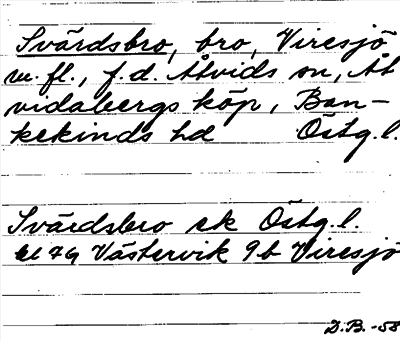 Svärdsbro, bro, Viresjö
m. fl., f.d. Åtvids sn, Åt
vidabergs köp, Ban-
kekinds hd Östg.l.
Svärdsbro ek Östg.l.
bl 79 Västervik 9b Viresjö
D.B.-58